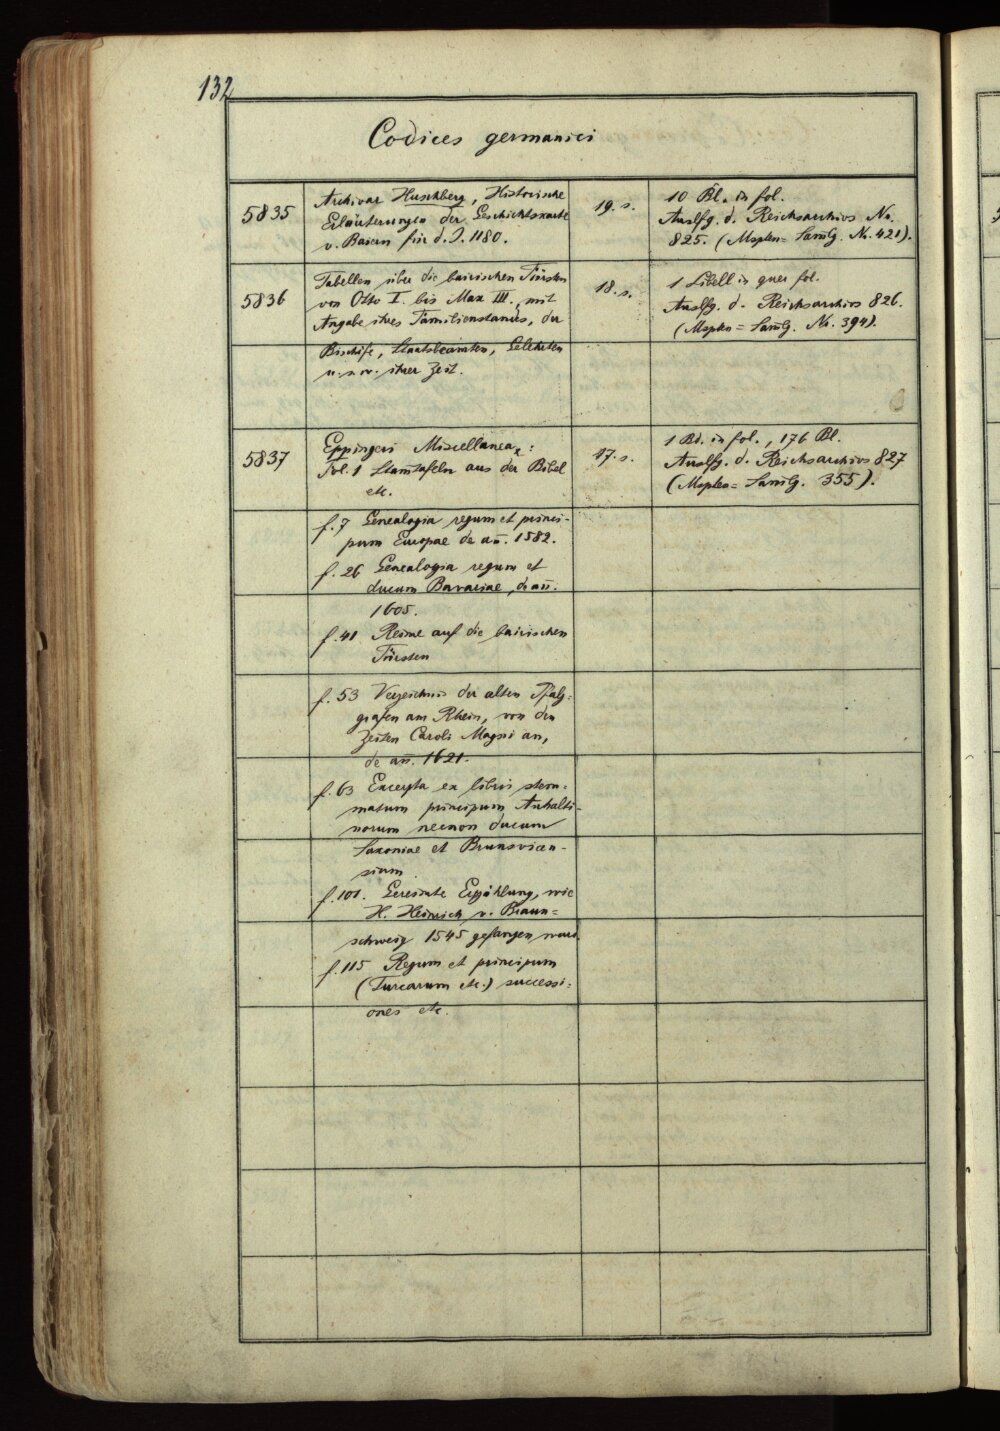 132
Codices germanici
5835
Archivar Huschberg, Historische
Erläuterungen der Geschichtskarte
v. Baiern für d. J. 1180.
19. s.
10 Bl. in fol.
Auslfg. d. Reichsarchivs No.
825. (Mspten = Samlg. No. 421).
5836
Tabellen über die bairischen Fürsten
von Otto I. bis Max III. mit
Angabe ihres Familienstandes, der
Bischöfe, Staatsbeamten, Gelehrten
u. s. w. ihrer Zeit.
18. s.
1 Libell in quer fol.
Auslfg. d. Reichsarchivs 826.
(Mspten = Samlg. No. 394).
5837
Eppingeri Miscellanea:
fol. 1 Stamtafeln aus der Bibel
etc.
17. s.
1 Bd. in fol., 176 Bl.
Auslfg. d. Reichsarchivs 827
(Mspten = Samlg. 355).
f. 7 Genealogia regum et princi-
pum Europae de añ. 1582.
f. 26 Genealogia regum et
ducum Bavariae, de añ.
1605.
f. 41 Reime auf die bairischen
Fürsten
f. 53 Verzeichnis der alten Pfalz-
grafen am Rhein, von den
Zeiten Caroli Magni an,
de añ. 1621.
f. 63 Excerpta ex libris stem-
matum principum Anhalti-
norum necnon ducum
Saxoniae et Brunsvicen-
sium
f. 101. Gereimte Erzählung, wie
H. Heinrich v. Braun=
schweig 1545 gefangen ward.
f. 115 Regum et principum
(Turcarum etc.) successi-
ones etc.